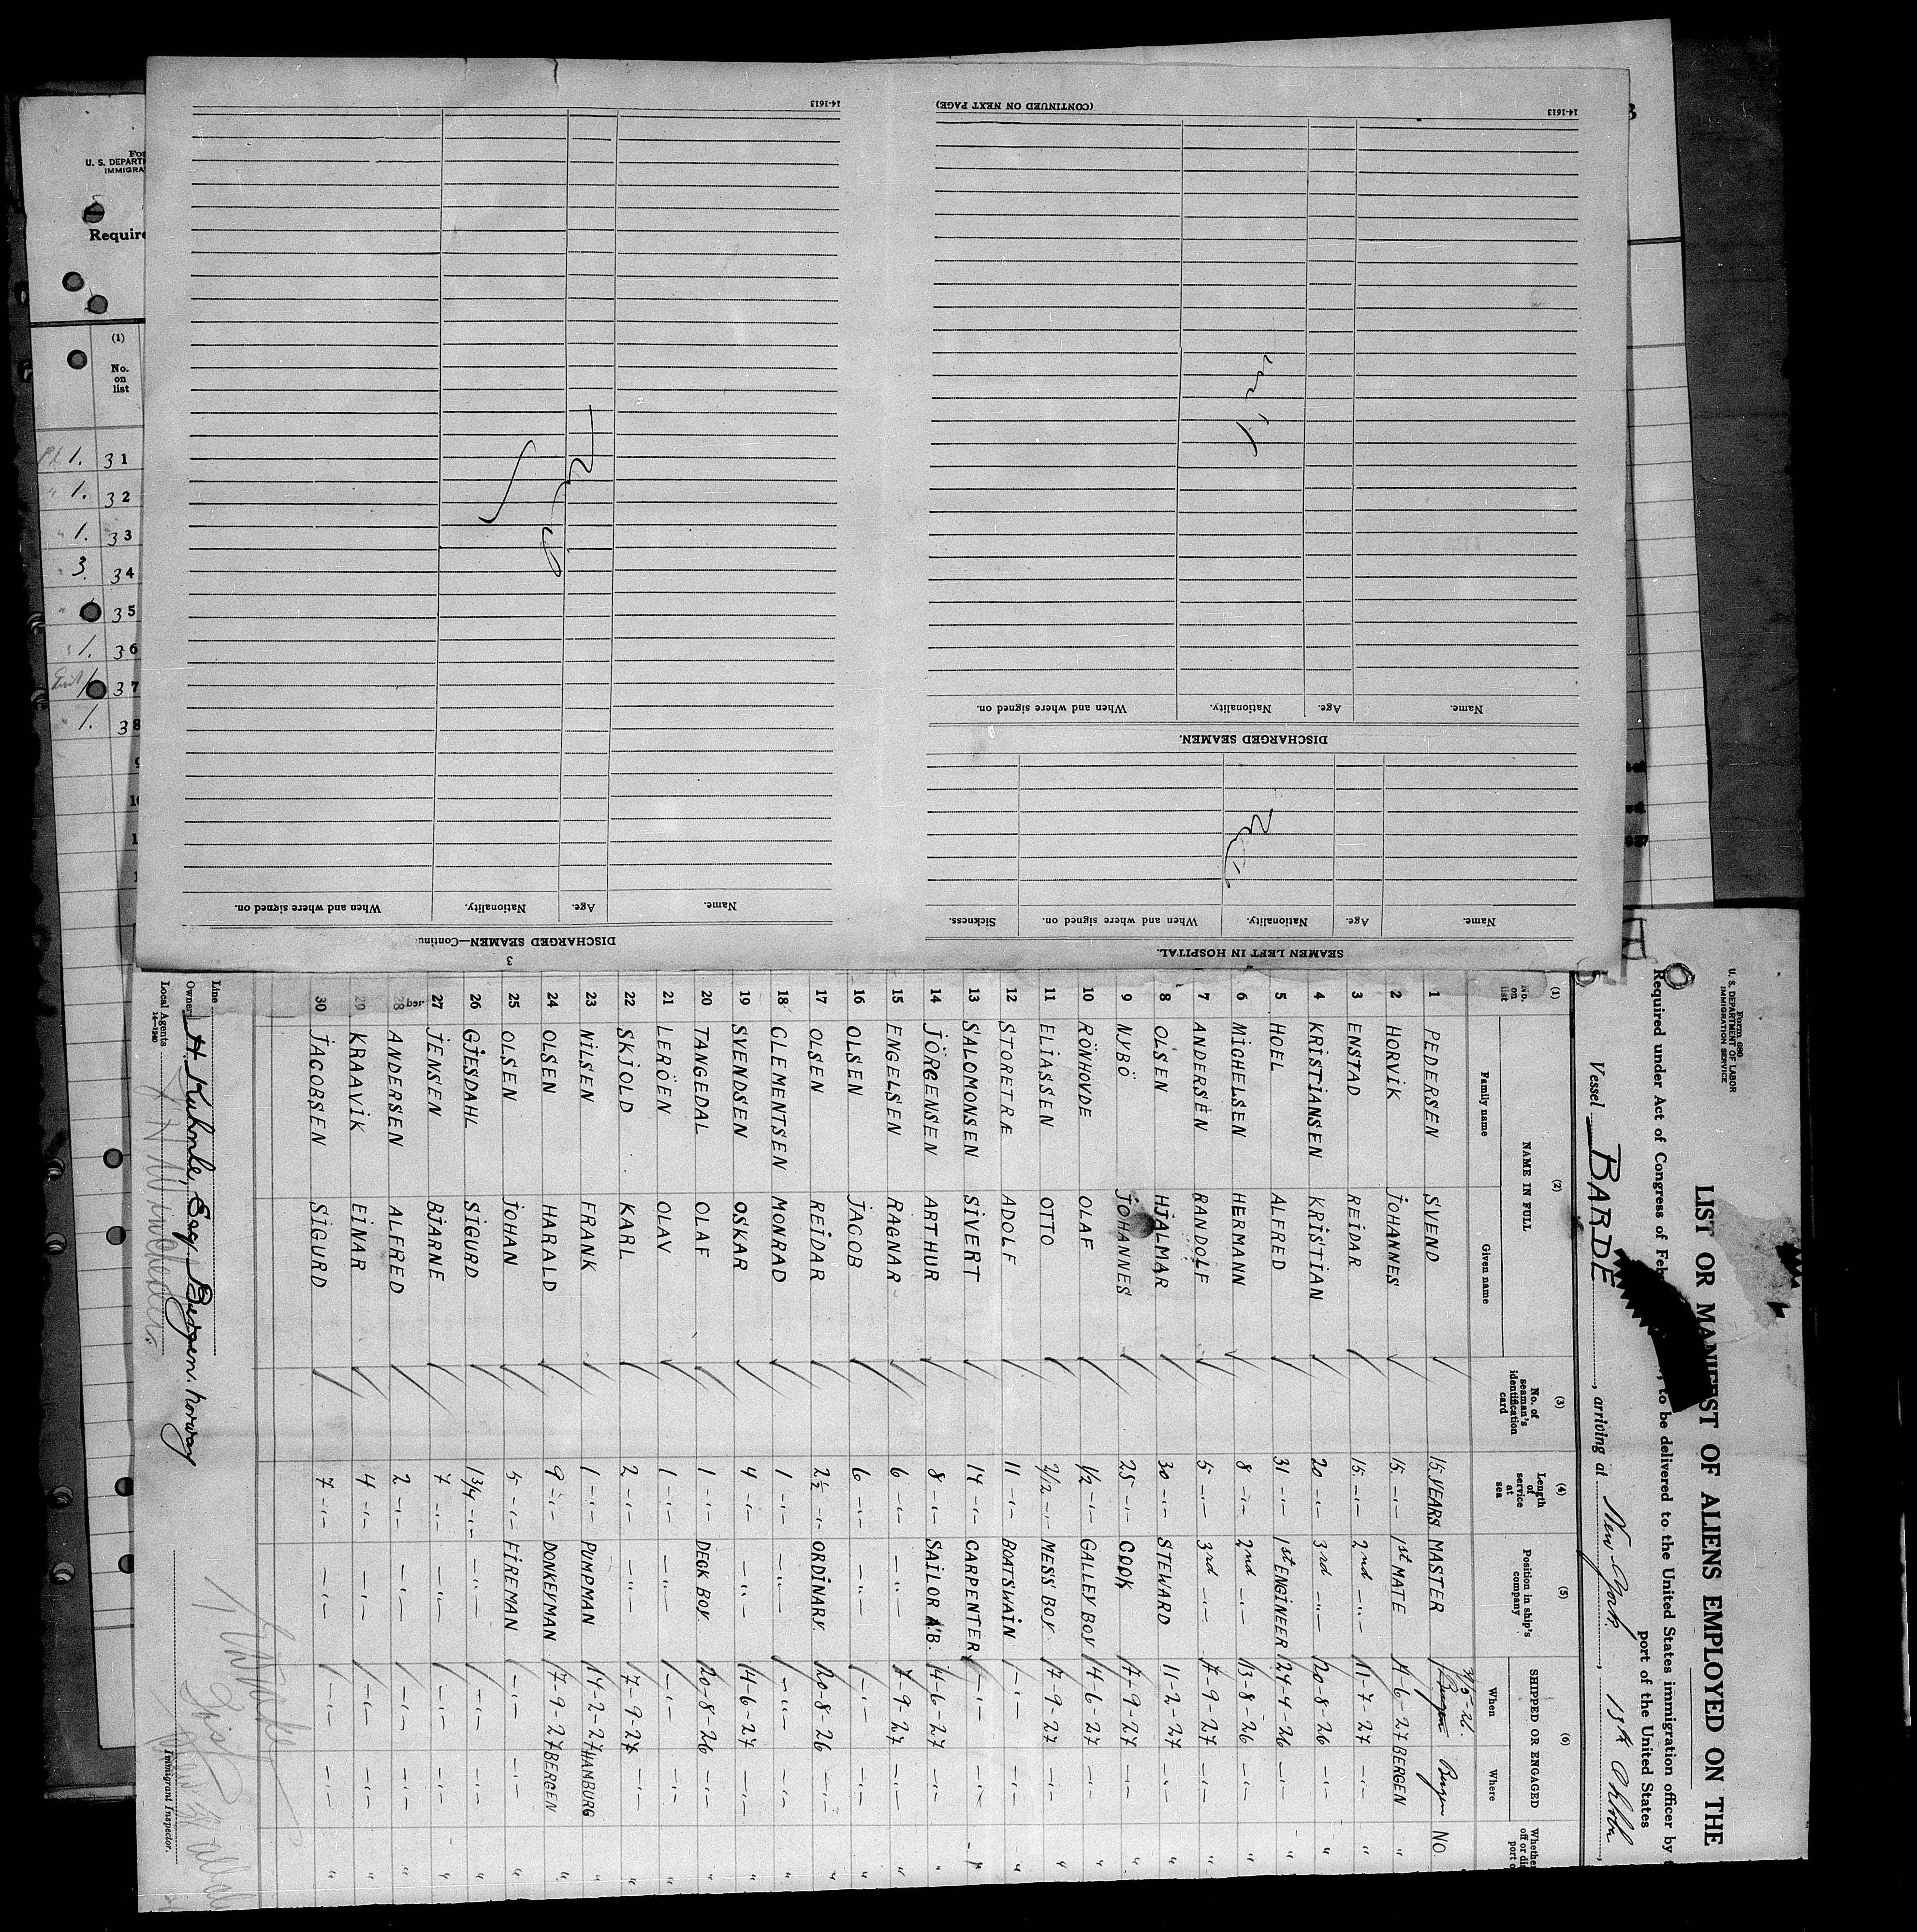 Form 689
U. S. DEPARTMENT OF LABOR
IMMIGRATION SERVICE
LIST OR MANIFEST OF ALIENS EMPLOYED ON THE
Required under Act of Congress of Feb , to be delivered to the United States immigration officer by
port of the United States
Vessel BARDE , arriving at New York , 13th
(1) (2) (3) (4) (5) (6)
No. on list NAME IN FULL No. of seaman's identification card Length of service at sea Position in ship's company SHIPPED OR ENGAGED
Family name Given name When Where
1 PEDERSEN SVEND 15 YEARS MASTER 31/5-26. Bergen NO
2 HORVIK JOHANNES 15 -"- 1st MATE 11-6-27 BERGEN "
3 ENSTAD REIDAR 15 -"- 2nd -"- 11-7-27 -"- "
4 KRISTIANSEN KRISTIAN 20 -"- 3rd -"- 20-8-26 -"- "
5 HOEL ALFRED 31 -"- 1st ENGINEER 24-4-26 -"- "
6 MICHELSEN HERMANN 8 -"- 2nd -"- 13-8-26 -"- "
7 ANDERSEN RANDOLF 5 -"- 3rd -"- 7-9-27 -"- "
8 OLSEN HJALMAR 30 -"- STEWARD 11-2-27 -"- "
9 NYBÖ JOHANNES 25 -"- COOK 7-9-27 -"- "
10 RÖNHOVDE OLAF 1/2 -"- GALLEY BOY 14-6-27 -"- "
11 ELIASSEN OTTO 2/12 -"- MESS BOY 7-9-27 -"- "
12 STORETRÆ ADOLF 11 -"- BOATSWAIN -"- -"- "
13 SALOMONSEN SIVERT 14 -"- CARPENTER -"- -"- "
14 JÖRGENSEN ARTHUR 8 -"- SAILOR A.B. 14-6-27 -"- "
15 ENGELSEN RAGNAR 6 -"- -"- 7-9-27 -"- "
16 OLSEN JACOB 6 -"- -"- -"- -"- "
17 OLSEN REIDAR 2½ -"- ORDINARY 20-8-26 -"- "
18 CLEMENTSEN MONRAD 1 -"- -"- -"- -"- "
19 SVENDSEN OSKAR 4 -"- -"- 14-6-27 -"- "
20 TANGEDAL OLAF 1 -"- DECK BOY 20-8-26 -"- "
21 LERÖEN OLAV 1 -"- -"- -"- -"- "
22 SKIOLD KARL 2 -"- -"- 7-9-27 -"- "
23 NILSEN FRANK 1 -"- PUMPMAN 14-2-27 HAMBURG "
24 OLSEN HARALD 9 -"- DONKEYMAN 7-9-27 BERGEN "
25 OLSEN JOHAN 5 -"- FIREMAN -"- -"- "
26 GJESDAHL SIGURD 1 3/4 -"- -"- -"- -"- "
27 JENSEN BJARNE 7 -"- -"- -"- -"- "
28 ANDERSEN ALFRED 2 -"- -"- -"- -"- "
29 KRAAVIK EINAR 4 -"- -"- -"- -"- "
30 JACOBSEN SIGURD 7 -"- -"- -"- -"- "
Line
Owners H. Kuhnle, Esq., Bergen. Norway
Local Agents
14-1240
Immigrant Inspector.
SEAMEN LEFT IN HOSPITAL.
Name. Age. Nationality. When and where signed on. Sickness.
DISCHARGED SEAMEN.
Name. Age. Nationality. When and where signed on.
14-1613
(CONTINUED ON NEXT PAGE)
3
DISCHARGED SEAMEN—Continu
Name. Age. Nationality. When and where signed on.
14-1613
For
U. S. DEPARTM
IMMIGRA
Require
(1)
No.
on
list
1. 31
1. 32
1. 33
3. 34
35
1. 36
37
1. 38